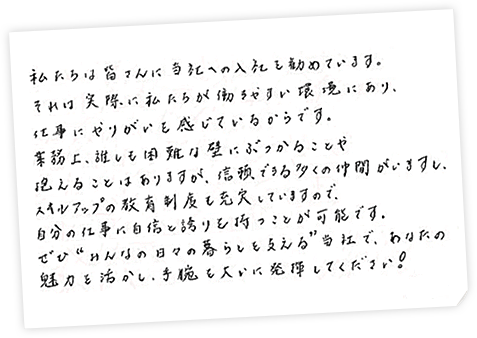 私たちは皆さんに当社への入社を勧めています。
それは実際に私たちが働きやすい環境にあり、
仕事にやりがいを感じているからです。
業務上、誰しも困難な壁にぶつかることや
抱えることはありますが、信頼できる多くの仲間がいますし、
スキルアップの教育制度も充実していますので、
自分の仕事に自信と誇りを持つことが可能です。
ぜひ“みんなの日々の暮らしを支える”当社で、あなたの
魅力を活かし、手腕を大いに発揮してください!